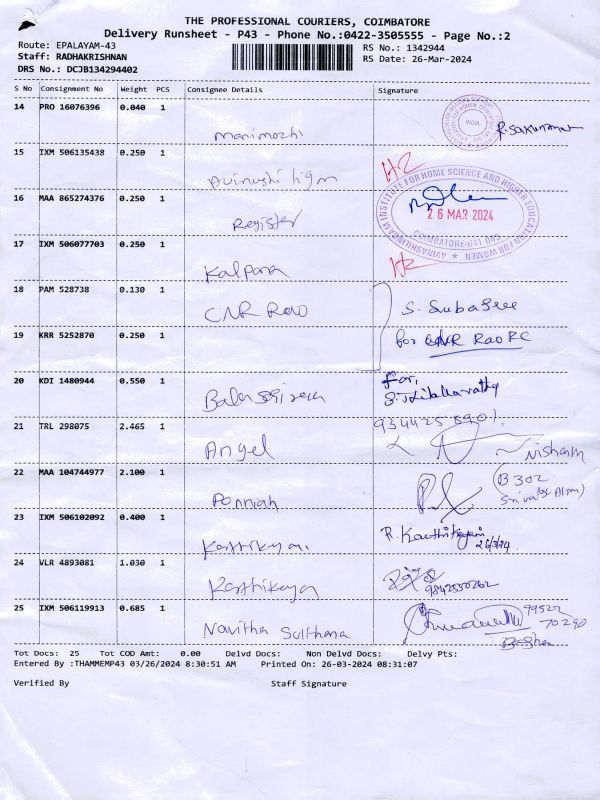 THE PROFESSIONAL COURIERS, COIMBATORE
Delivery Runsheet - P43 - Phone No.:0422-3505555 - Page No.:2
Route: EPALAYAM-43
RS No.: 1342944
Staff: RADHAKRISHNAN
RS Date: 26-Mar-2024
DRS No.: DCJB134294402
S No Consignment No Weight PCS Consignee Details Signature
14 PRO 16076396 0.040 1
INDIA
Manimozhi
15 IXM 506135438 0.250 1
AVINASHILINGAM INSTITUTE FOR HOME SCIENCE AND HIGHER EDUCATION FOR WOMEN
26 MAR 2024
COIMBATORE-641 043
16 MAA 865274376 0.250 1
Register
17 IXM 506077703 0.250 1
Kalpana
18 PAM 528738 0.130 1
CNR Rao
S. Subasree
19 KRR 5252870 0.250 1
for CNR Rao RC
20 KDI 1480944 0.550 1
For,
21 TRL 298075 2.465 1
Angel
Nisham
22 MAA 104744977 2.100 1
B302
Ponniah
23 IXM 506102092 0.400 1
R. Kaarthikeyani
26/3/24
24 VLR 4893081 1.030 1
9842550262
25 IXM 506119913 0.685 1
99522
70290
Navitha Sulthana
Tot Docs: 25 Tot COD Amt: 0.00 Delvd Docs: Non Delvd Docs: Delvy Pts:
Entered By :THAMMEMP43 03/26/2024 8:30:51 AM Printed On: 26-03-2024 08:31:07
Verified By Staff Signature